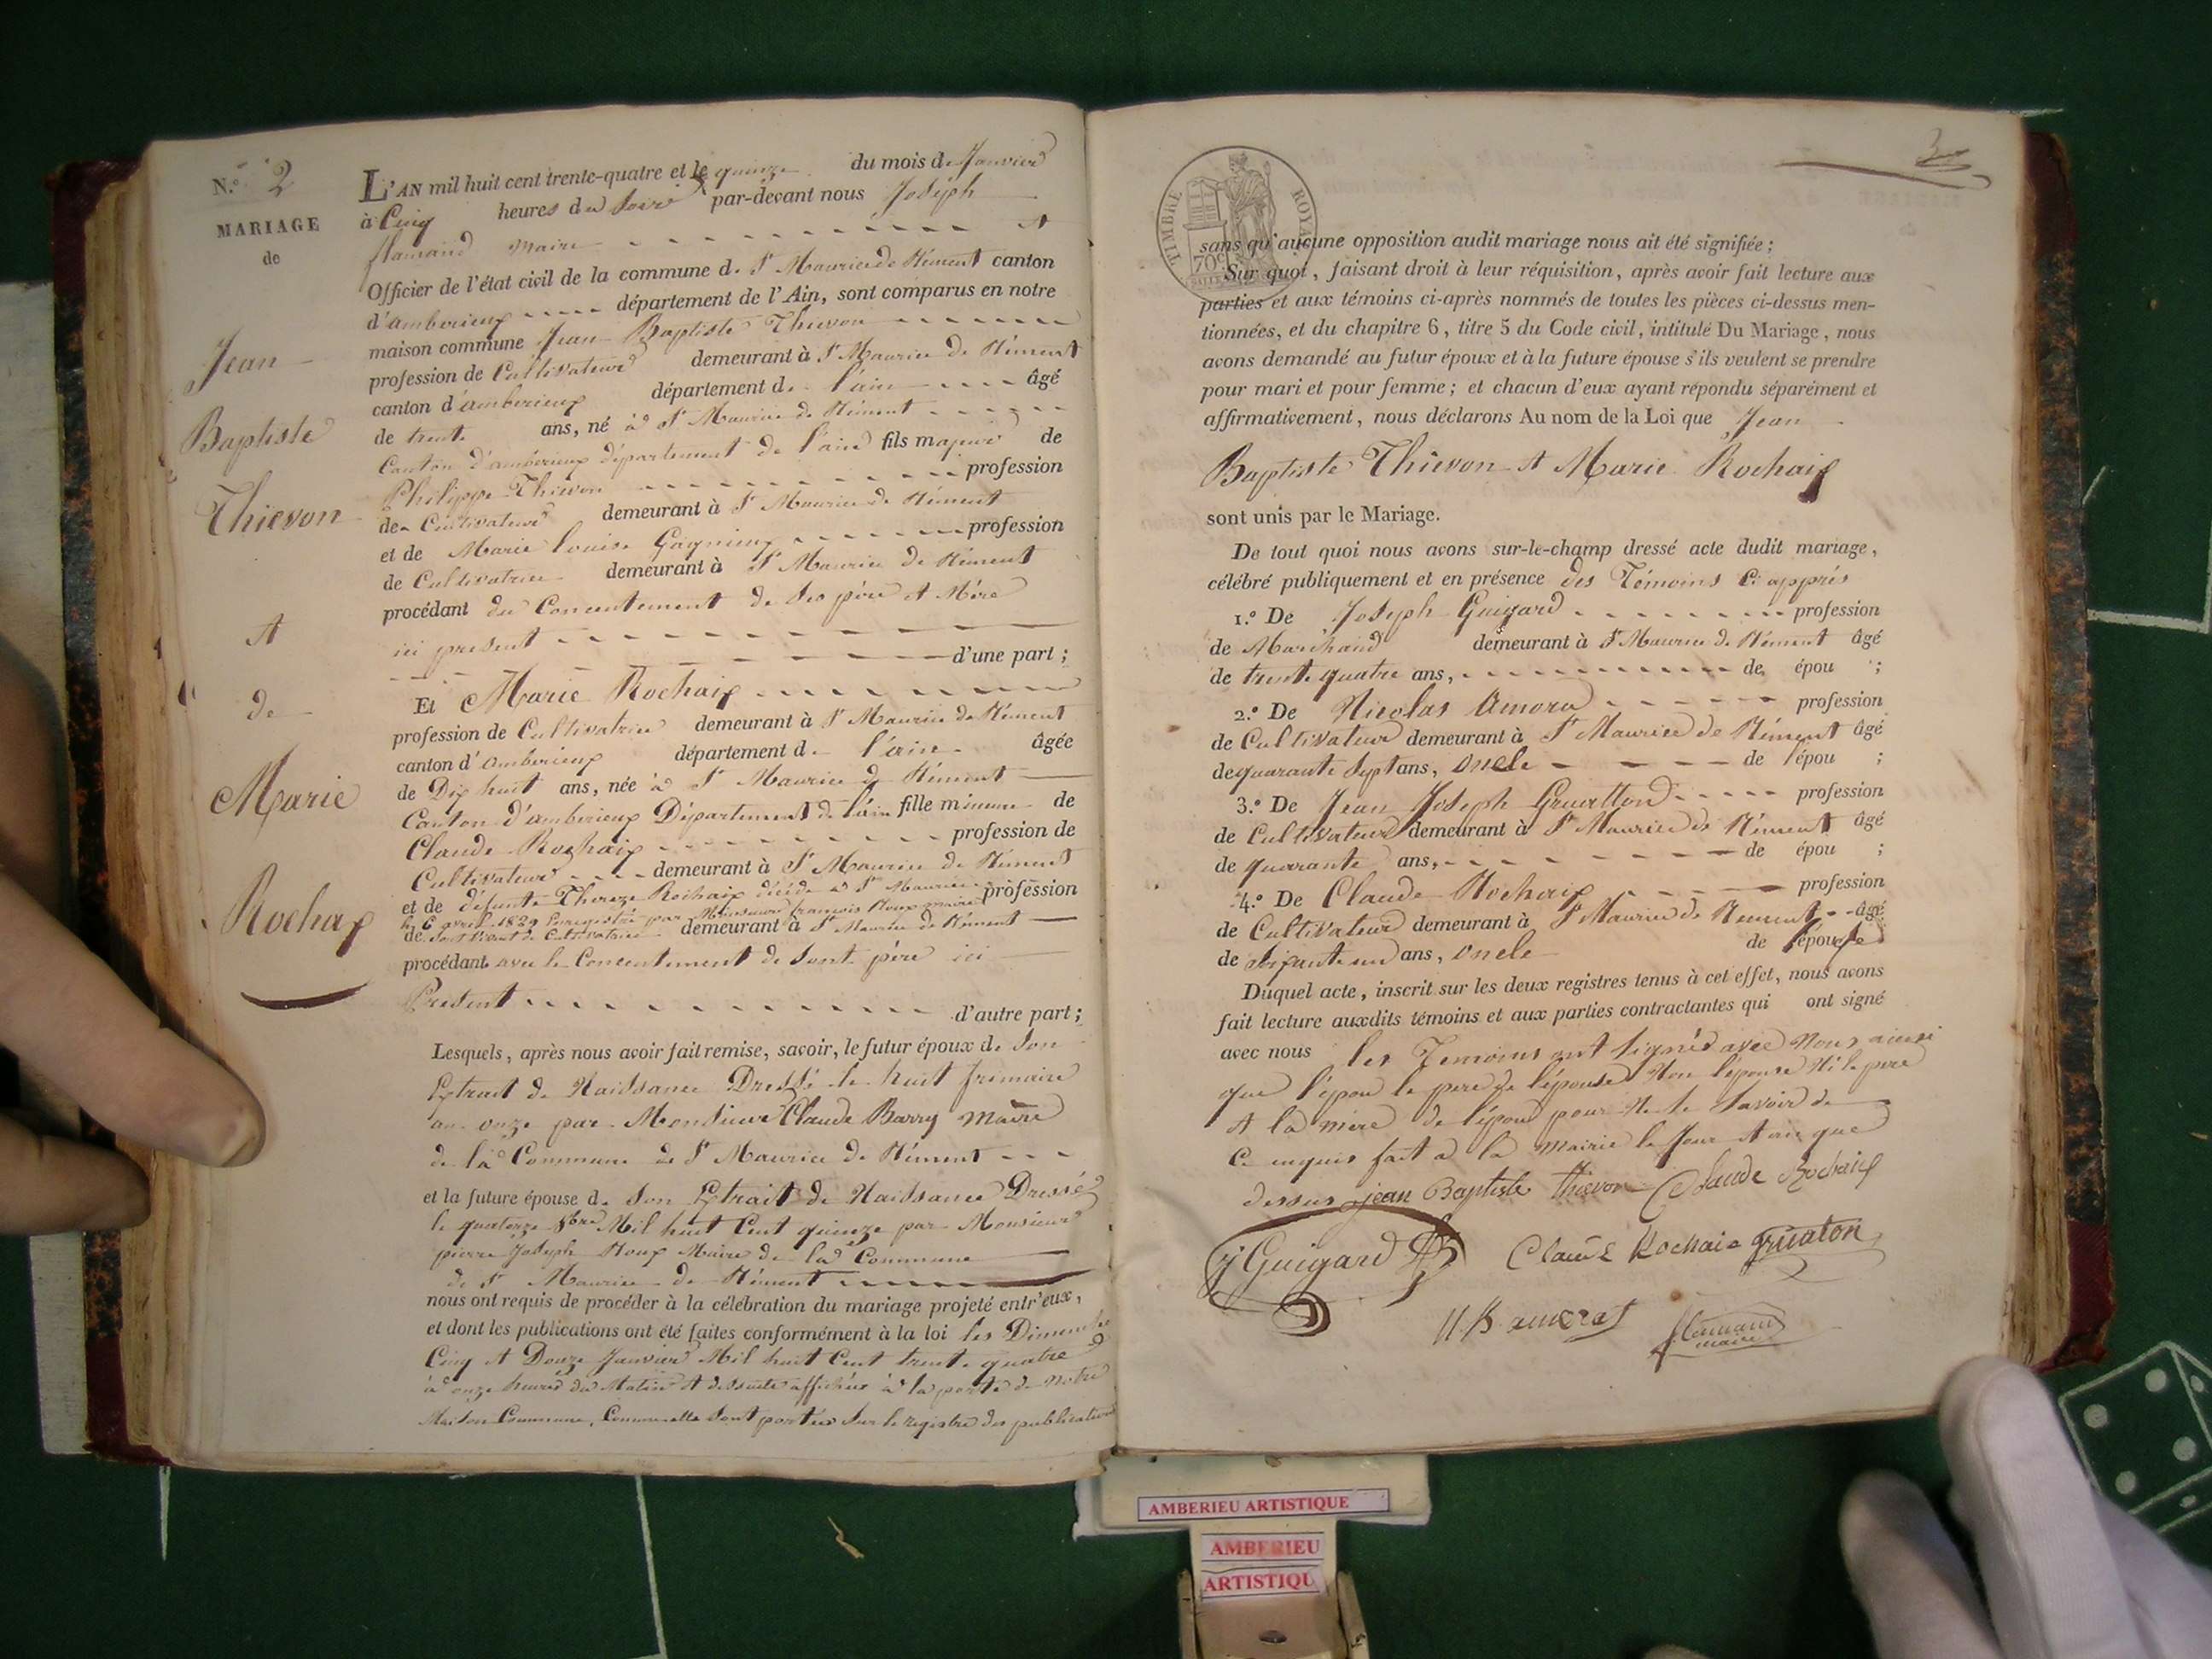 N.º 2
MARIAGE
de
Jean
Baptiste
Thievon
et
de
Marie
Rochaix
L'AN mil huit cent trente-quatre et le quinze du mois de Janvier
à Cinq heures du soir par-devant nous Joseph
flamand maire et
Officier de l'état civil de la commune de St Maurice de Rément canton
d'amberieux département de l'Ain, sont comparus en notre
maison commune Jean Baptiste Thievon
profession de Cultivateur demeurant à St Maurice de Rément
canton d'amberieux département de l'ain âgé
de trente ans, né à St Maurice de Rément
Canton d'amberieux département de l'ain fils majeur de
Philippe Thievon profession
de Cultivateur demeurant à St Maurice de Rément
et de Marie louise Gagnieux profession
de Cultivatrice demeurant à St Maurice de Rément
procédant du Concentement de ses père et Mère
ici present
d'une part ;
Et Marie Rochaix
profession de Cultivatrice demeurant à St Maurice de Rément
canton d'amberieux département de l'ain âgée
de Dix huit ans, née à St Maurice de Rément
Canton d'amberieux Département de l'ain fille mineure de
Claude Rochaix profession de
Cultivateur demeurant à St Maurice de Rément
et de défunte Thereze Rochaix décédé à St Maurice profession
le 6 avril 1829 Enregistré par Monsieur françois Roux maire
de sont vivant de Cultivatrice demeurant à St Maurice de Rément
procédant avec le Concentement de sont père ici
Présent
d'autre part ;
Lesquels, après nous avoir fait remise, savoir, le futur époux de son
Extrait de Naissance Dressé le huit frimaire
an onze par Monsieur Claude Barry maire
de la Commune de St Maurice de Rément
et la future épouse de son Extrait de Naissance Dressé
le quatorze 8bre Mil huit Cent quinze par Monsieur
pierre Joseph Roux Maire de lade Commune
de St Maurice de Rément
nous ont requis de procéder à la célébration du mariage projeté entr'eux,
et dont les publications ont été faites conformément à la loi les Dimenches
Cinq et Douze Janvier Mil huit Cent trente quatre
à onze heures du Matin et dessuite affichée à la porte de notre
Maison Commune, Comme elle sont portées sur le registre des publications
3
TIMBRE ROYAL
70c
sans qu'aucune opposition audit mariage nous ait été signifiée ;
Sur quoi, faisant droit à leur réquisition, après avoir fait lecture aux
parties et aux témoins ci-après nommés de toutes les pièces ci-dessus men-
tionnées, et du chapitre 6, titre 5 du Code civil, intitulé Du Mariage, nous
avons demandé au futur époux et à la future épouse s'ils veulent se prendre
pour mari et pour femme ; et chacun d'eux ayant répondu séparément et
affirmativement, nous déclarons Au nom de la Loi que Jean
Baptiste Thievon et Marie Rochaix
sont unis par le Mariage.
De tout quoi nous avons sur-le-champ dressé acte dudit mariage,
célébré publiquement et en présence des Témoins Ci apprés
1.º De Joseph Guigard profession
de Marchand demeurant à St Maurice de Rément âgé
de trente quatre ans, de épou ;
2.º De Nicolas Amora profession
de Cultivateur demeurant à St Maurice de Rément âgé
de quarante Sept ans, oncle de l'épou ;
3.º De Jean Joseph Gruatton profession
de Cultivateur demeurant à St Maurice de Rément âgé
de quarante ans, de épou ;
4.º De Claude Rochaix profession
de Cultivateur demeurant à St Maurice de Rement âgé
de soixante un ans, oncle de l'épouse
Duquel acte, inscrit sur les deux registres tenus à cet effet, nous avons
fait lecture auxdits témoins et aux parties contractantes qui ont signé
avec nous les Temoins ont signés avec Nous ainsi
que l'épou le pere de l'épouse Non l'epouse Ni le pere
et la mère de l'épou pour Ne le savoir de
Ce enquis fait a la mairie le Jour et an que
dessus jean Baptiste thievon Claude Rochaix
j Guigard Claude Rochaix Gruaton
flamand
maire
AMBERIEU ARTISTIQUE
AMBERIEU
ARTISTIQU